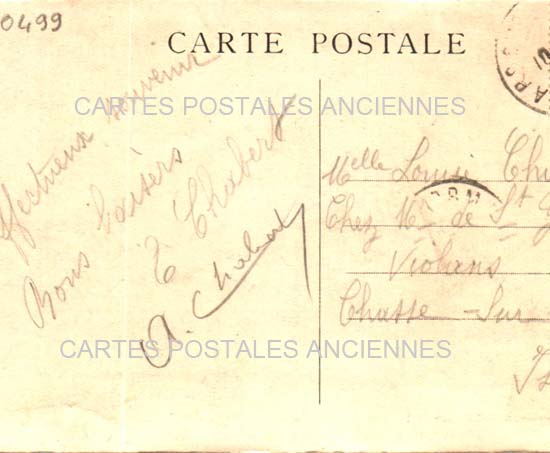 0499
CARTE POSTALE
CARTES POSTALES ANCIENNES
ffectueux souvenir
Bons baisers
E Chabert
A. Chabert
Melle Louise Ch
Chez Mr de St G
Violans
Chasse-Sur
Is
CARTES POSTALES ANCIENNES